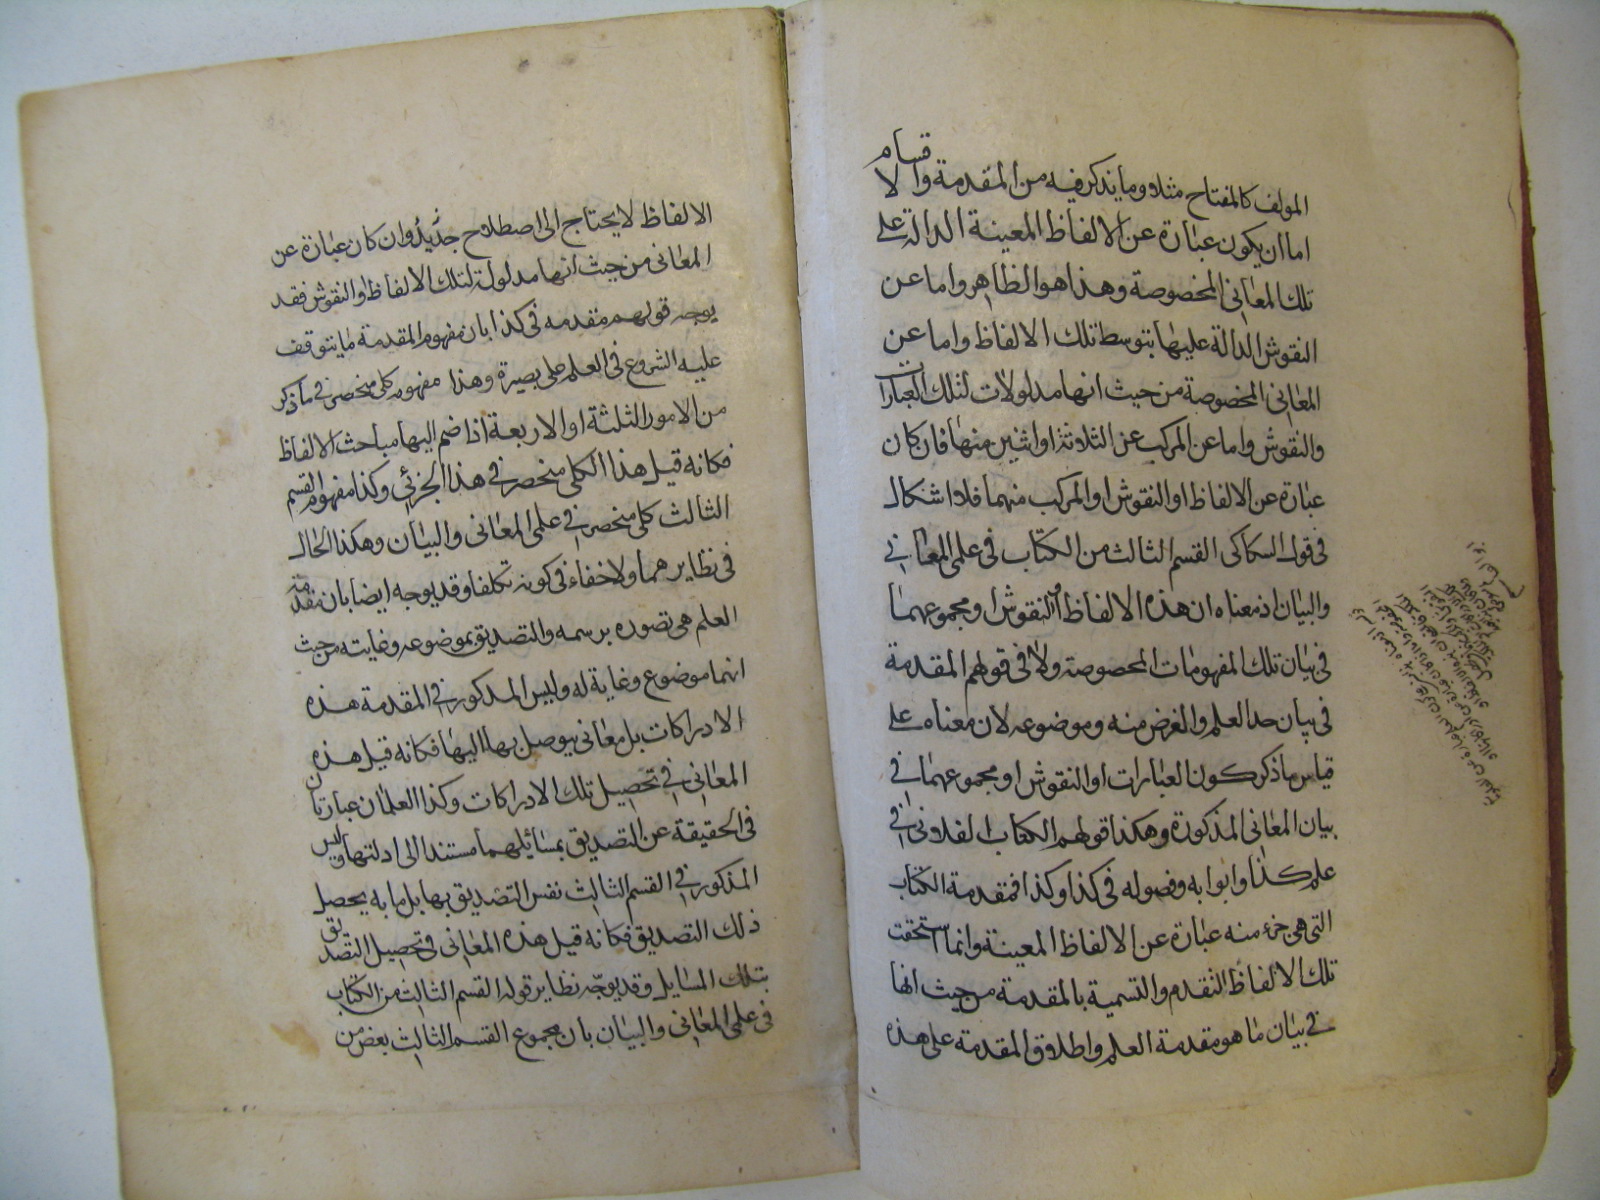 المولف كالمفتاح مثلا وما يذكر فيه من المقدمة والاقسام
اما ان يكون عبارة عن الالفاظ المعينة الدالة على
تلك المعانى المخصوصة وهذا هو الظاهر واما عن
النقوش الدالة عليها بتوسط تلك الالفاظ واما عن
المعانى المخصوصة من حيث انها مدلولات لتلك العبارات
والنقوش واما عن المركب عن الثلاثة او اثنين منها فان كان
عبارة عن الالفاظ او النقوش او المركب منهما فلا اشكال
فى قول السكاكى القسم الثالث من الكتاب فى علمى المعانى
والبيان اذ معناه ان هذه الالفاظ او النقوش او مجموعهما
فى بيان تلك المفهومات المخصوصة ولا فى قولهم المقدمة
فى بيان حد العلم والغرض منه وموضوعه لان معناه على
قياس ما ذكر كون العبارات او النقوش او مجموعهما فى
بيان المعانى المذكورة وهكذا قولهم الكتاب الفلانى فى
علم كذا وابوابه وفصوله فى كذا وكذا فمقدمة الكتاب
التى هى جزء منه عبارة عن الالفاظ المعينة وانما استحقت
تلك الالفاظ التقدم والتسمية بالمقدمة من حيث انها
فى بيان ما هو مقدمة العلم واطلاق المقدمة على هذه
الالفاظ لا يحتاج الى اصطلاح جديد وان كان عبارة عن
المعانى من حيث انها مدلولة لتلك الالفاظ او النقوش فقد
يوجه قولهم مقدمه فى كذا بان مفهوم المقدمة ما يتوقف
عليه الشروع فى العلم على بصيرة وهذا مفهوم كلى منحصر فى ما ذكر
من الامور الثلثة او الاربعة اذا ضم اليها مباحث الالفاظ
فكانه قيل هذا الكلى منحصر فى هذا الجزئى وكذا مفهوم القسم
الثالث كلى منحصر فى علمى المعانى والبيان وهكذا الحال
فى نظايرهما ولا خفاء فى كونه تكلفا وقد يوجه ايضا بان مقدمة
العلم هى تصوره برسمه والتصديق بموضوعه وغايته من حيث
انهما موضوع وغاية له وليس المذكور فى المقدمة هذه
الادراكات بل معانى يتوصل بها اليها فكانه قيل هذه
المعانى فى تحصيل تلك الادراكات وكذا العلمان عبارتان
فى الحقيقة عن التصديق بمسائلهما مستندا الى ادلتها وليس
المذكور فى القسم الثالث نفس التصديق بها بل ما به يحصل
ذلك التصديق فكانه قيل هذه المعانى فى تحصيل التصديق
بتلك المسايل وقد يوجّه نظاير قوله القسم الثالث من الكتاب
فى علمى المعانى والبيان بان مجموع القسم الثالث بعض من